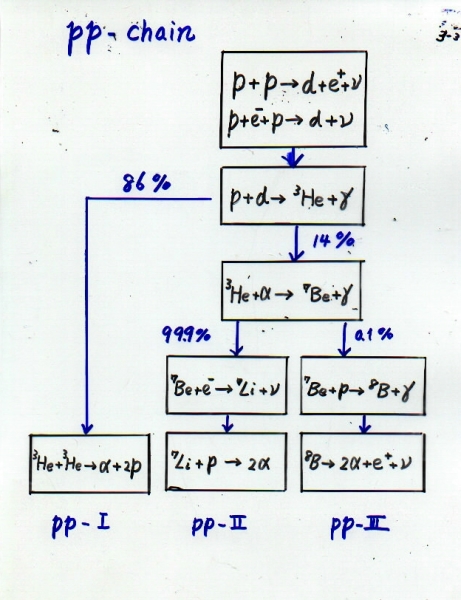 pp-chain
p+p→d+e⁺+ν
p+e⁻+p→d+ν
86%
p+d→ ³He+γ
14%
³He+α→ ⁷Be+γ
99.9%
0.1%
⁷Be+e⁻→⁷Li+ν
⁷Be+p→⁸B+γ
³He+³He→α+2p
⁷Li+p → 2α
⁸B→2α+e⁺+ν
pp-I
pp-II
pp-III